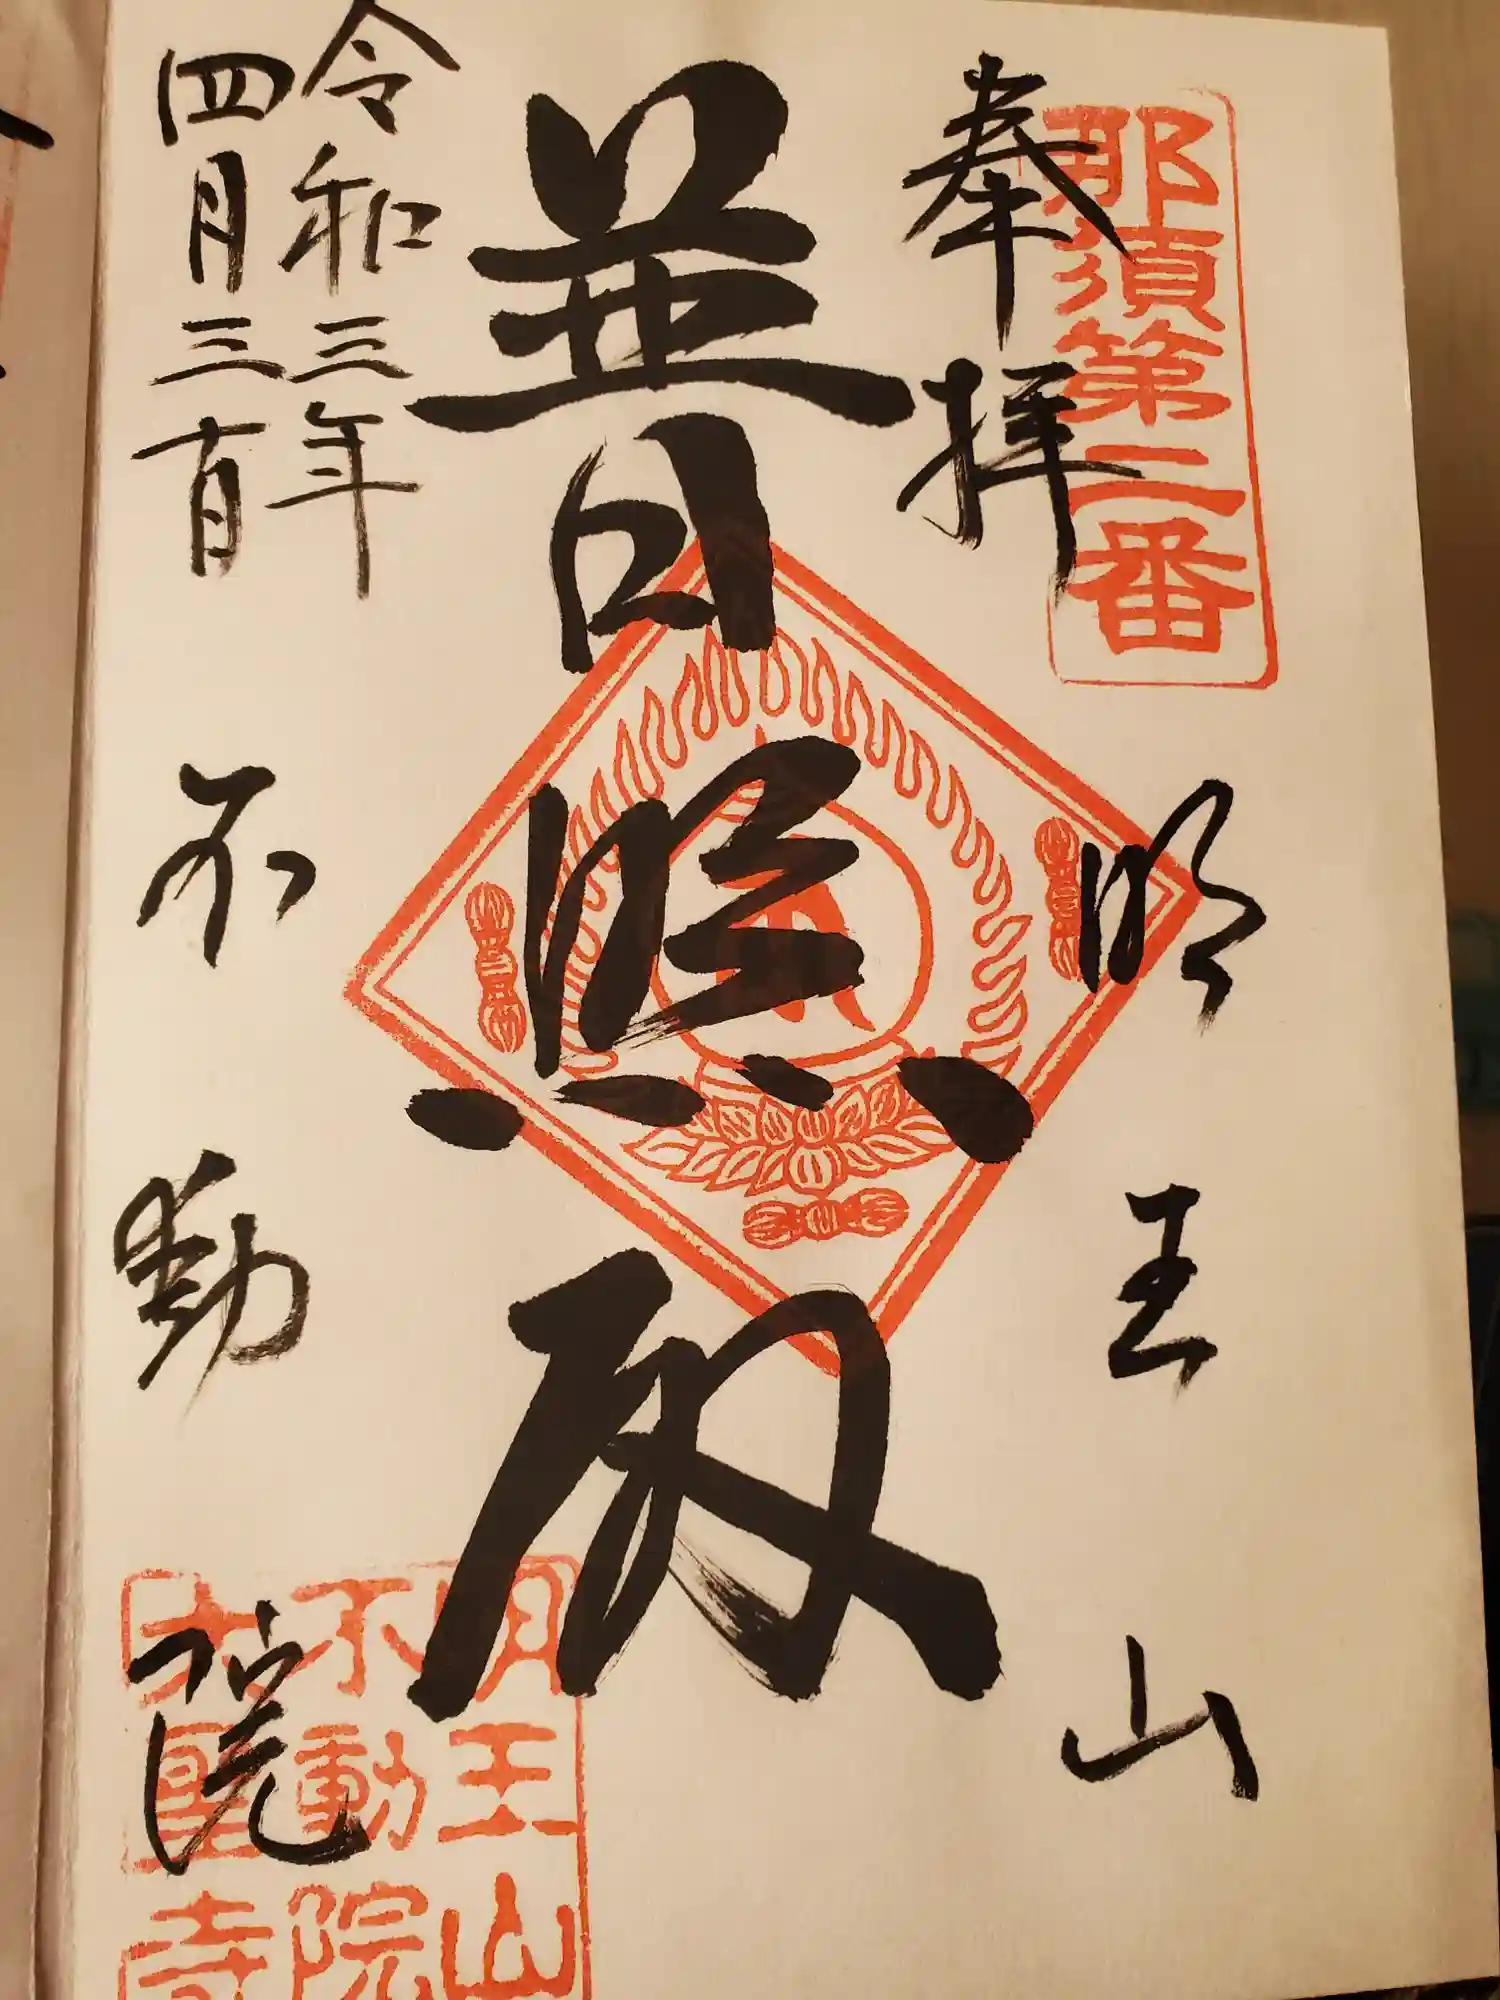 那須第二番
奉拝
明王山
普照殿
令和三年
四月三十日
不動院
明王山
不動院
大聖寺